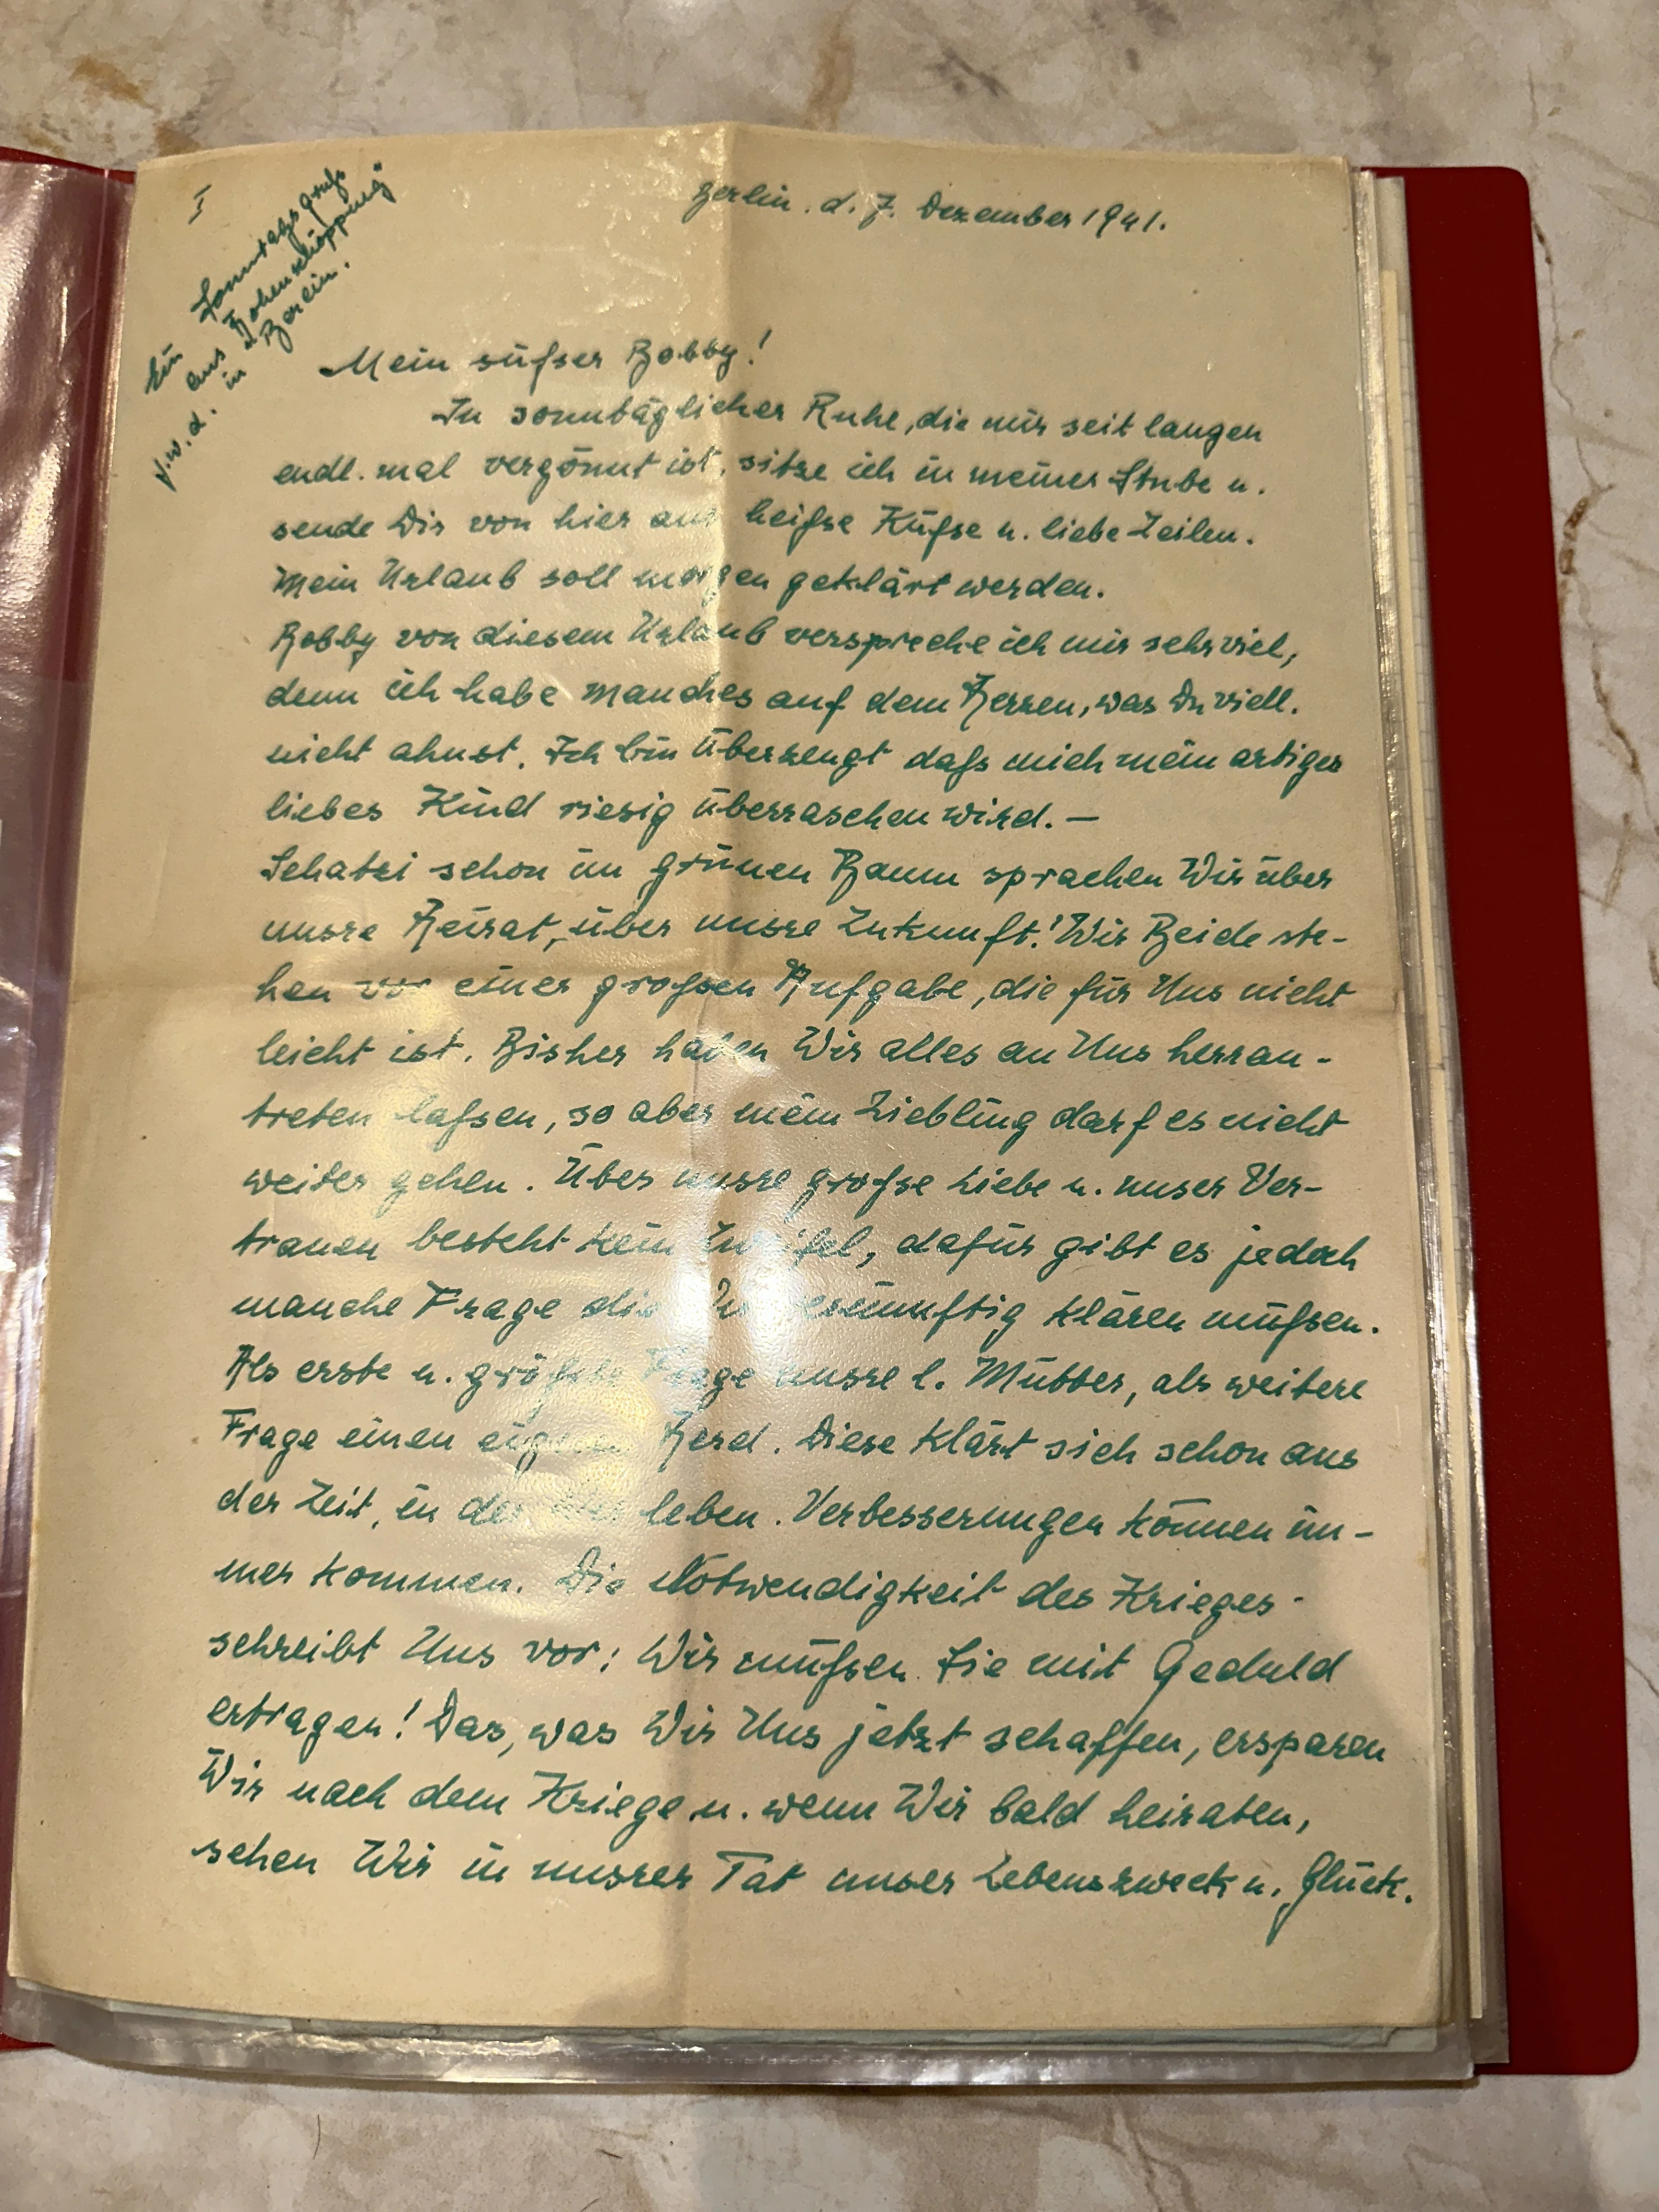 I
Ein Sonntagsgruß
aus "Hohenschöpping"
j.w.d. in Berlin.
Berlin. d. 7. Dezember 1941.
Mein süßer Bobby!
In sonntäglicher Ruhe, die mir seit langen
endl. mal vergönnt ist, sitze ich in meiner Stube u.
sende Dir von hier aus heiße Küße u. liebe Zeilen.
Mein Urlaub soll morgen geklärt werden.
Bobby von diesem Urlaub verspreche ich mir sehr viel,
denn ich habe manches auf dem Herzen, was Du viell.
nicht ahnst. Ich bin überzeugt daß mich mein artiges
liebes Kind riesig überraschen wird. —
Schatzi schon im grünen Baum sprachen Wir über
unsre Heirat, über unsre Zukunft! Wir Beide ste-
hen vor einer großen Aufgabe, die für Uns nicht
leicht ist. Bisher haben Wir alles an Uns herran-
treten laßen, so aber mein Liebling darf es nicht
weiter gehen. Über unsre große Liebe u. unser Ver-
trauen besteht kein Zweifel, dafür gibt es jedoch
manche Frage die Wir vernünftig klären müßen.
Als erste u. größte Frage unsre l. Mütter, als weitere
Frage einen eignen Herd. Diese klärt sich schon aus
der Zeit, in der Wir leben. Verbesserungen können im-
mer kommen. Die Notwendigkeit des Krieges
schreibt Uns vor; Wir müßen Sie mit Geduld
ertragen! Das, was Wir Uns jetzt schaffen, ersparen
Wir nach dem Kriege u. wenn Wir bald heiraten,
sehen Wir in unsrer Tat unser Lebenszweck u. Glück.